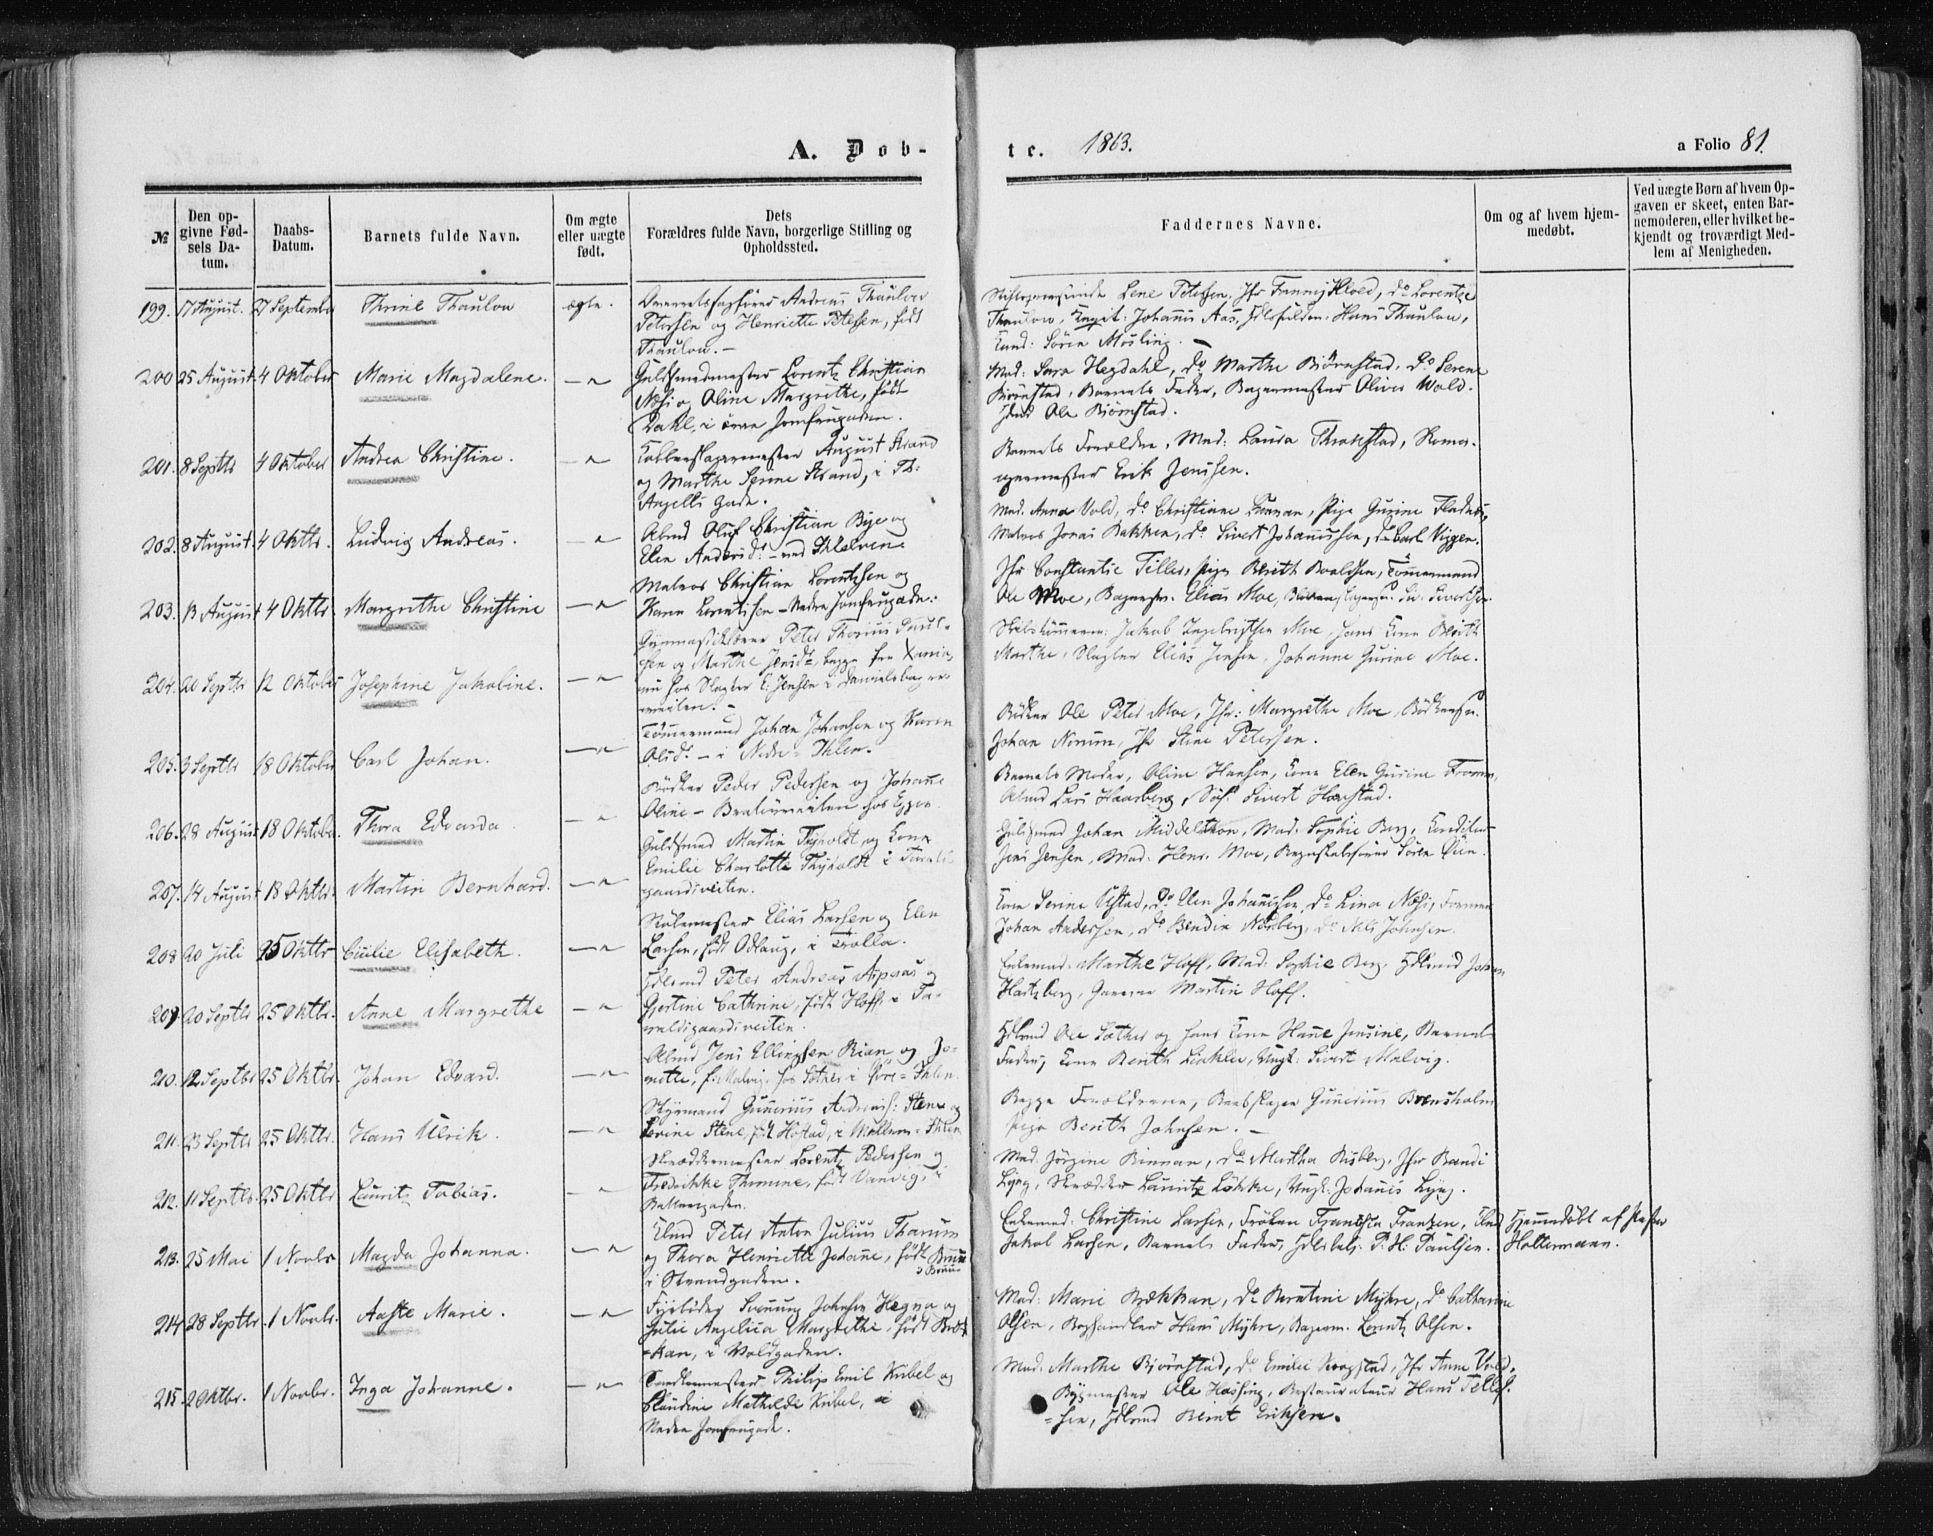 A. Døb-
te. 1863.
a Folio 81.
№
Den op-
givne Fød-
sels Da-
tum.
Daabs-
Datum.
Barnets fulde Navn.
Om ægte
eller uægte
født.
Dets
Forældres fulde Navn, borgerlige Stilling og
Opholdssted.
Faddernes Navne.
Om og af hvem hjem-
medøbt.
Ved uægte Børn af hvem Op-
gaven er skeet, enten Bar-
nemoderen, eller hvilket be-
kjendt og troværdigt Med-
lem af Menigheden.
199. 17 August. 27 September Thrine Thaulow ægte. Andreas Thaulow
Petersen og Henriette Petersen, født
Thaulow.
Lene Petersen, Jfr Fanny Kloed, do Lorentze
Thaulow, Johannes Aas, Hans Thaulow,
Cand: Sören Mosling.
200 25 August. 4 Oktober Marie Magdalene. — " Guldsmedmester Lorentz Christian
Næsi og Oline Margrethe, født
Dahl, i øvre Jomfrugaden.
Mad: Sara Hegdahl, do Marthe Björnstad, do Serene
Björnstad, Barnets Fader, Bagermester Oliver Wold.
Ole Björnstad.
201. 8 Septbr 4 Oktober Andrea Christine. — " Kobberslagermester August Strand
og Marthe Serine Strand, i Th:
Angells Gade.
Barnets Forældre, Mad: Laura Throndstad,
Erik Jenssen.
202. 8 August. 4 Oktbr. Ludvig Andreas. — " Arbmd Oluf Christian Bye og
Elen Andersdr — ved Ihlelven
Mad. Anna Vold, do Christiane Pige Gurine
Matros Jonas Bakken, do Sivert Johannessen, do Carl Viggen.
203. 13 August 4 Oktbr. Margrethe Christine — " Matros Christian Lorentzsen og
Karen Lorentzsen — Nedre Jomfrugade.
Jfr Constantie Tiller, Pige Berith Tömmermand
Ole Moe, Elias Moe,
204. 20 Septbr 12 Oktober Josephine Jakobine. — " Gymnastiklærer Peter Thorius Poul-
sen og Marthe Jensdr, begge fra Xania,
nu hos Slagter E: Jensen i Danielsbager-
veiten.
Jakob Ingebrigtsen Moe, hans Kone Berith
Marthe, Slagter Elias Jensen, Johanne Gurine Moe.
205. 3 Septbr 18 Oktober Carl Johan. — " Tömmermand Johan Johansen og Karen
Olsdr — i Nedre-Ihlen.
Bödker Ole Peter Moe, Jfr: Margrethe Moe, Bödkersv.
Johan Norum, Jfr Stine Petersen.
206. 28 August 18 Oktober. Thora Edvarda — " Bödker Peder Pedersen og Johanne
Oline — Bratörveiten hos Egger.
Barnets Moder, Oline Hansen, Kone Elen Gurine
Arbmd Lars Haarberg, Sivert Harstad.
207. 14 August 18 Oktbr. Martin Bernhard. — " Guldsmed Martin Thyholdt og Kone
Emilie Charlotte Thyholdt i
gaardsveiten.
Guldsmed Johan Middelthon, Mad: Sophie Berg,
Jens Jensen, Mad: Henr. Moe, Regnskabsförer Sören Öien.
208 20 Juli 25 Oktbr Cecilie Elisabeth. — " Elias Larsen og Elen
Larsen, født Odlaug, i Trolla.
Kone Serine Ulstad, do Elen Johannesen, do Lina Næsi, Formand
Johan Andersen, do Bendix Nordberg, do Nils Johnsen.
209 20 Septbr 25 Oktbr. Anne Margrethe — " Peter Andreas Aspaas og
Gjertine Cathrine, født Hoff, i
gaardsveiten.
Enkemad: Marthe Hoff, Mad: Sophie Berg, Johan
Hartzberg, Garver Martin Hoff.
210. 12 Septbr 25 Oktbr. Johan Edvard. — " Arbmd Jens Ellingsen Rian og Jo-
nette, f. Malvig, hos Sather i Övre-Ihlen
Ole Sæther og hans Kone Hanne Jensine, Barnets
Fader, Kone Berith Ungk: Sivert Malvig.
211. 23 Septbr 25 Oktbr. Hans Ulrik. — " Styrmand Gunerius Andreas: Stene og
Serine Stene, født Höstad, i Mellem-Ihlen
Begge Forældrene, Gunerius Brensholm
Pige Berith Johnsen. —
212. 11 Septbr. 25 Oktbr Lauritz Tobias. — " Skræddermester Lorentz Pedersen og
Fredrikke Thomine, født Vanvig, i
Bakkegaden.
Mad: Jörgine Binnan, do Martha Risberg, Jfr Randi
Lyng, Skrædder Lauritz Lökke, Ungk: Johannes Lyng.
213. 25 Mai 1 Novbr Magda Johanna. — " Peter Anton Julius Thanum
og Thora Henriette Johanne, født Bruun
i Strandgaden.
Enkemad: Christine Larsen, Fröken Frantzen,
Jakob Larsen, Barnets Fader, P. H. Paulsen.
Hjemmedöbt af Pastor
Holtermann.
214 28 Septbr. 1 Novbr. Aaste Marie. — " Svenung Johnsen Hegna og
Julie Angelica Margrethe, født Bræk-
-kan, i Voldgaden.
Mad: Marie Brækkan, do Berntine Myhre, do Cathrine
Olsen, Boghandler Hans Myhre, Bagerm. Lorentz Olsen.
215. 2 Oktbr. 1 Novbr. Inga Johanne. — " Philip Emil Kribel og
Claudine Mathilde Kribel, i
Nedre Jomfrugade.
Mad: Marthe Björnstad, do Emilie Krogstad, Jfr Anne Vold,
Bygmester Ole Hassing, Restaurateur Hans Tellef-
-sen, Bernt Eriksen.